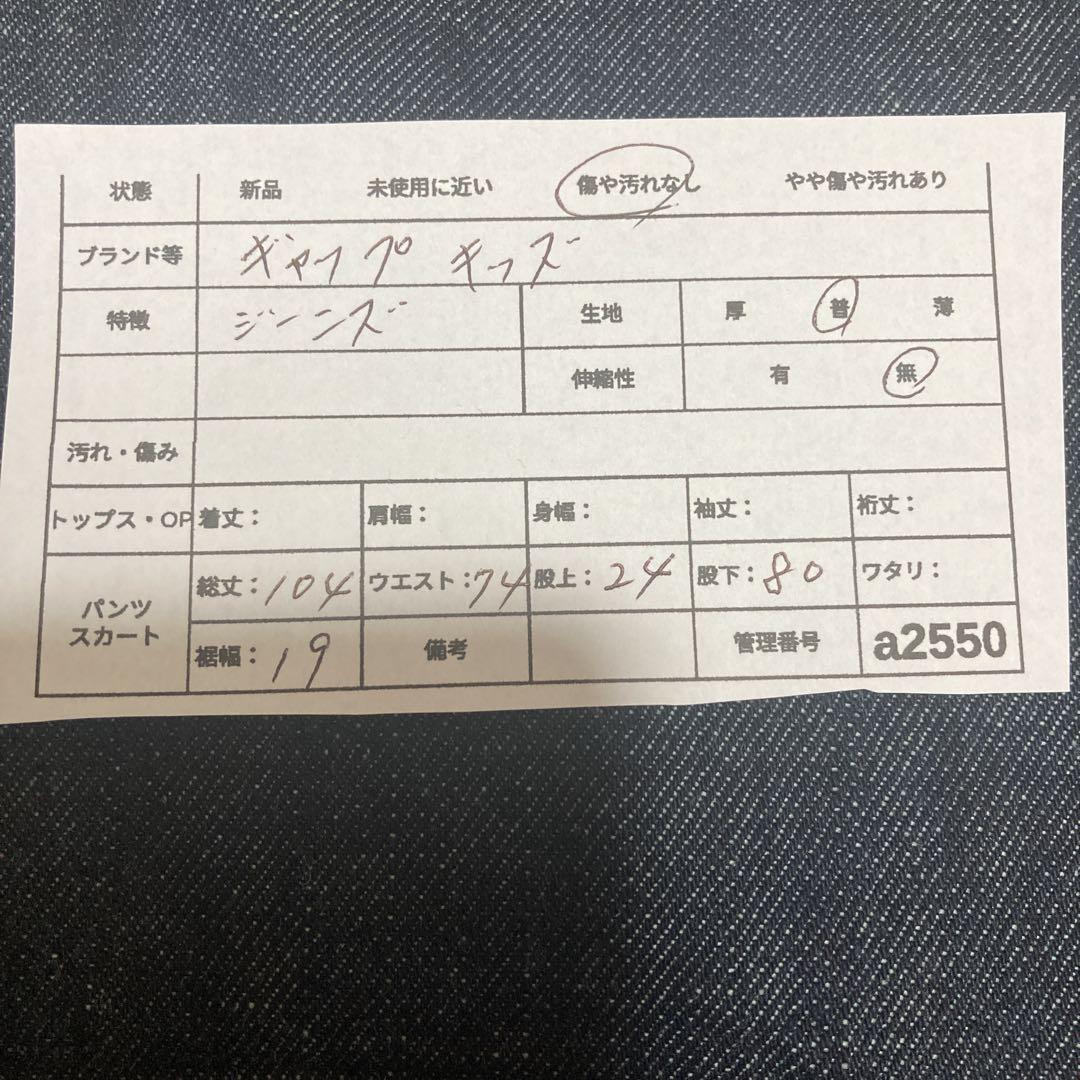 状態 新品 未使用に近い 傷や汚れなし やや傷や汚れあり
ブランド等 ギャップ キッズ
特徴 ジーンズ 生地 厚 普 薄
伸縮性 有 無
汚れ・傷み
トップス・OP 着丈： 肩幅： 身幅： 袖丈： 裄丈：
パンツ スカート 総丈：104 ウエスト：74 股上：24 股下：80 ワタリ：
裾幅：19 備考 管理番号 a2550